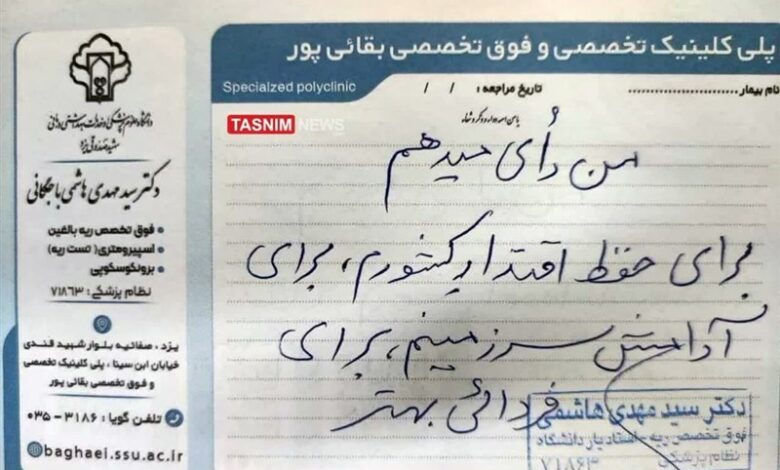 پلی کلینیک تخصصی و فوق تخصصی بقائی پور
Specialzed polyclinic
نام بیمار:
تاریخ مراجعه: / /
TASNIM NEWS
من رأی میدهم
برای حفظ اقتدار کشورم، برای
آرامش سرزمینم، برای
فردائی بهتر
دکتر سید مهدی هاشمی
فوق تخصص ریه - استادیار دانشگاه
نظام پزشکی
۷۱۸۶۳
دانشگاه علوم پزشکی و خدمات بهداشتی درمانی
شهید صدوقی یزد
دکتر سید مهدی هاشمی باجگانی
• فوق تخصص ریه بالغین
• اسپیرومتری( تست ریه)
• برونکوسکوپی
نظام پزشکی: ۷۱۸۶۳
یزد، صفائیه بلوار شهید قندی
خیابان ابن سینا ، پلی کلینیک تخصصی
و فوق تخصصی بقائی پور
تلفن گویا: ۳۱۸۶ - ۰۳۵
baghaei.ssu.ac.ir